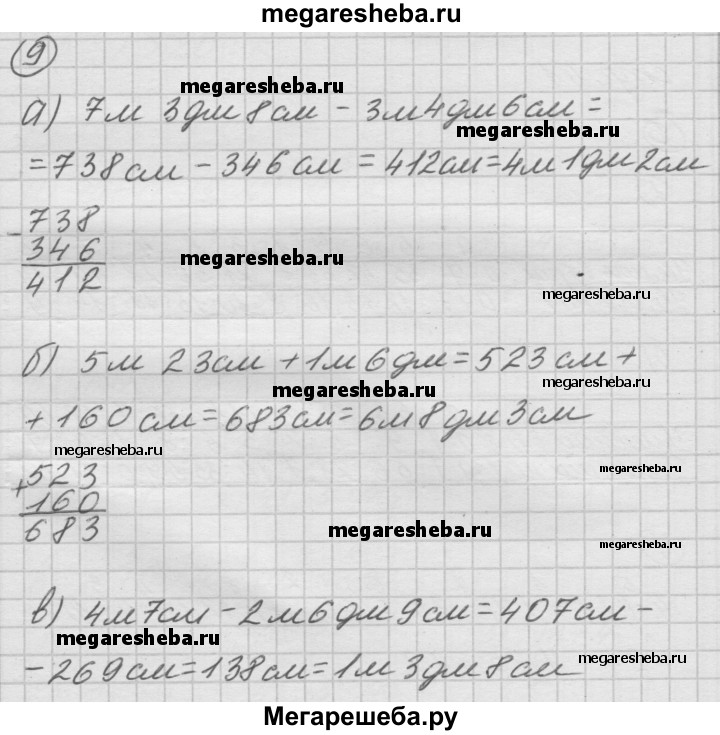 megaresheba.ru
9
megaresheba.ru
а) 7м 3дм 8см - 3м 4дм 6см =
megaresheba.ru
= 738см - 346см = 412см = 4м 1дм 2см
- 738
346
412
megaresheba.ru
megaresheba.ru
б) 5м 23см + 1м 6дм = 523см +
megaresheba.ru
megaresheba.ru
+ 160см = 683см = 6м 8дм 3см
megaresheba.ru
megaresheba.ru
+ 523
160
683
megaresheba.ru
megaresheba.ru
в) 4м 7см - 2м 6дм 9см = 407см -
megaresheba.ru
- 269см = 138см = 1м 3дм 8см
megaresheba.ru
Мегарешеба.ру